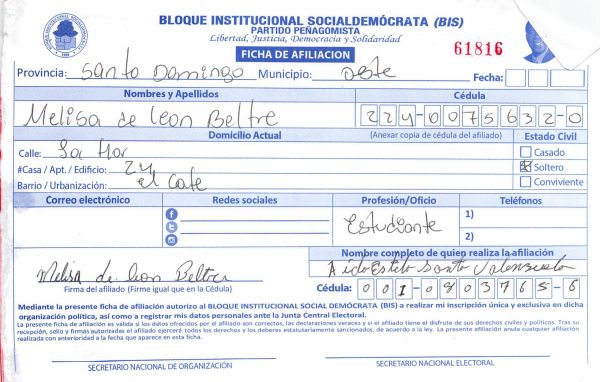 BLOQUE INSTITUCIONAL SOCIALDEMÓCRATA (BIS)
PARTIDO PEÑAGOMISTA
Libertad, Justicia, Democracia y Solidaridad
FICHA DE AFILIACION
61816
Provincia: Santo Domingo Municipio: oeste Fecha:
Nombres y Apellidos Cédula
Melisa de leon Beltre 224-0075632-0
Domicilio Actual (Anexar copia de cédula del afiliado) Estado Civil
Calle: La flor Casado
#Casa / Apt. / Edificio: 24 Soltero
Barrio / Urbanización: el Cafe Conviviente
Correo electrónico Redes sociales Profesión/Oficio Teléfonos
Estudiante 1)
2)
Nombre completo de quien realiza la afiliación
Melisa de leon Beltre Santo Valenzuela
Firma del afiliado (Firme igual que en la Cédula) Cédula: 001-0803765-6
Mediante la presente ficha de afiliación autorizo al BLOQUE INSTITUCIONAL SOCIAL DEMÓCRATA (BIS) a realizar mi inscripción única y exclusiva en dicha
organización política, así como a registrar mis datos personales ante la Junta Central Electoral.
La presente ficha de afiliación es válida si los datos ofrecidos por el afiliado son correctos, las declaraciones veraces y si el afiliado tiene el disfrute de sus derechos civiles y políticos. Tras su
recepción, sello y firmas autorizadas el afiliado ejercerá todos los derechos y los deberes estatutariamente sancionados, de acuerdo a la ley. La presente afiliación anula cualquier afiliación
realizada con anterioridad a la fecha que aparece en esta ficha.
SECRETARIO NACIONAL DE ORGANIZACIÓN SECRETARIO NACIONAL ELECTORAL